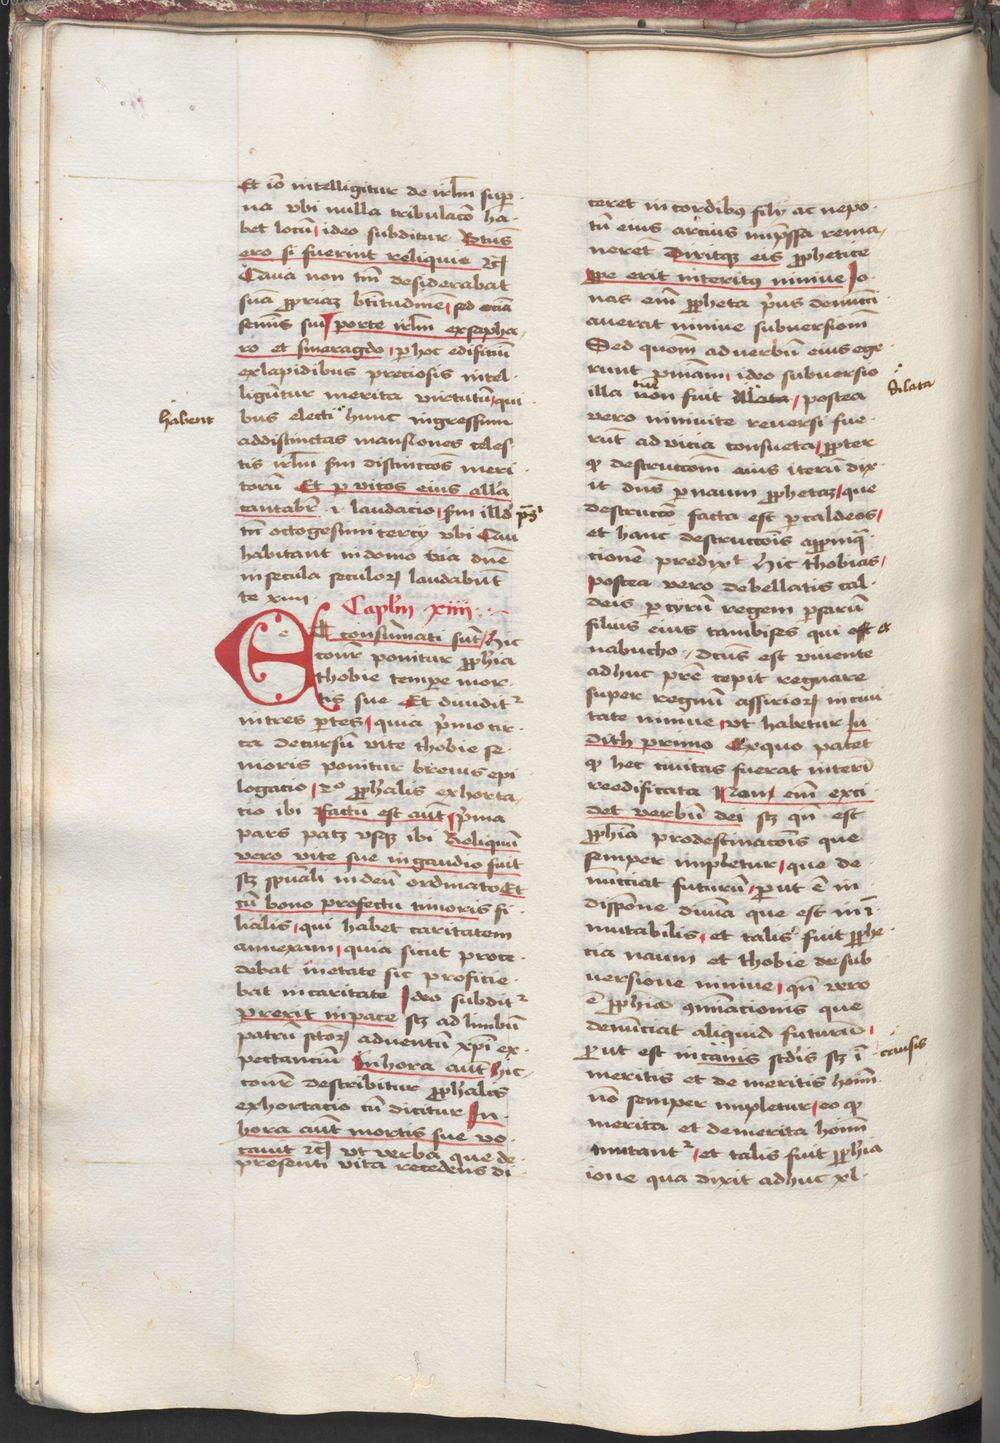 Et iō intelligitur de irlm̄ sup̄
na vbi nulla tribulacō ha
bet locū ideo subditur Btus̄
ero si fuerint reliquie ꝛc̄
Cauā non tm̄ desiderabat
suā ꝓpriaꝫ btitudinē sed eciā
semīs sui porte irlm̄ exsapha
ro et smeragdo ꝑ hoc edificiū
exlapidibus preciosis intel
ligūtur merita virtutū qui
habent
bus electi hunc ingressum
addistinctas mansiones celes
tis irlm̄ scdm distinccōs meri
torū Et ꝑ vicos eius all'a
cantabr̄ i laudacio scdm illd ps̄
tm̄ octogesimitercy vbi Cau
habitant indomo tua dn̄e
insecula seculoꝝ laudabūt
te xiiii
Caplm̄ xiiii
e
Et consūmati sūt hic
conr̄ ponitur ꝓph'ia
thobie tempe mor
tis sue Et diuidit᷑
intres ꝑtes quia p'mo cir
ca decursū vite thobie se
nioris ponitur breuis epi
logacio 2º ꝓph'alis exhorta
cio ibi factū est aūt p'ma
pars patꝫ vsqꝫ ibi Reliquū
vero vite sue ingaudio fuit
scꝫ spūali indeū ordinato Et
cū bono profectu timoris fi
lialis qui habet caritatem
annexam quia sicut proce
debat inetate sic proficie
bat incaritate Ideo subdit᷑
prexit inpace scꝫ ad limbū
patrū sctoꝝ aduentū xpī ex
pectanciū Inhora aūt hic
conr̄ describitur ꝓph'alis
exhortacio cū dicitur In
hora aūt mortis sue vo
cauit ꝛc̄ vt verba que de
presenti vita recedens di
ceret in cordibꝯ filij ac nepo
tū eius arcius imp̄ssa rema
nerēt Dixitqꝫ eis ꝓphetice
ꝓpe erit interitꝯ niniue Jo
nas em̄ ꝓpheta p'us denūcci
auerat niniue subuersionē
Sed quoniā ad verbū eius ege
runt pnīam ideo subuersio
illa tūc non fuit illata postea
dilata
vero niniuite reuersi fue
rūt ad vicia consueta ꝓpter
ꝙ destruccōem eius iterū dix
it dn̄s ꝑ naum ꝓphetaꝫ que
destruccō facta est ꝑ caldeos
et hanc destruccōis appinq̄
cionē predixit hic thobias
postea vero debellatis cal
deis ꝑ cyrū regem ꝑsarū
filius eius cambises qui est et
nabucho dcūs est viuente
adhuc pr̄e cepit regnare
super regnū assirioꝝ inciui
tate niniue vt habetur Iu
dith primo Exquo patet
ꝙ hec ciuitas fuerat interī
reedificata Non em̄ exci
det verbū dei scꝫ qn̄ est
ꝓph'ia predestinacōis que
semper impletur que de
nūcciat futurū ꝓut ē in
dispōne diuina que est inī
mutabilis et talis fuit ꝓphe
cia naum et thobie desub
uersione niniue qn̄ vero
ē ꝓph'ia ꝯminacionis que
denūciat aliquid futurū
ꝓut est in cānis scdis scꝫ ī
causis
meritis et de meritis hoīm
nō semper impletur eo ꝙ
merita et demerita hoīm
mutant᷑ et talis fuit ꝓph'ia
ione qua dixit adhuc xl